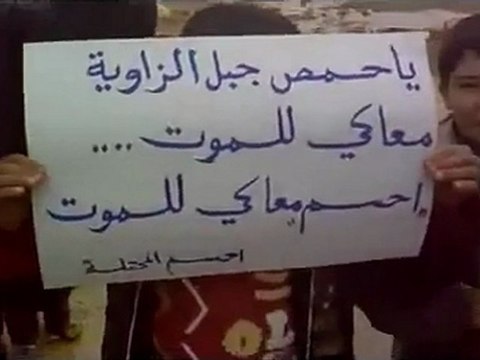 ياحمص جبل الزاوية
معاكي للموت ....
إحسم معاكي للموت
احسم المحتلة